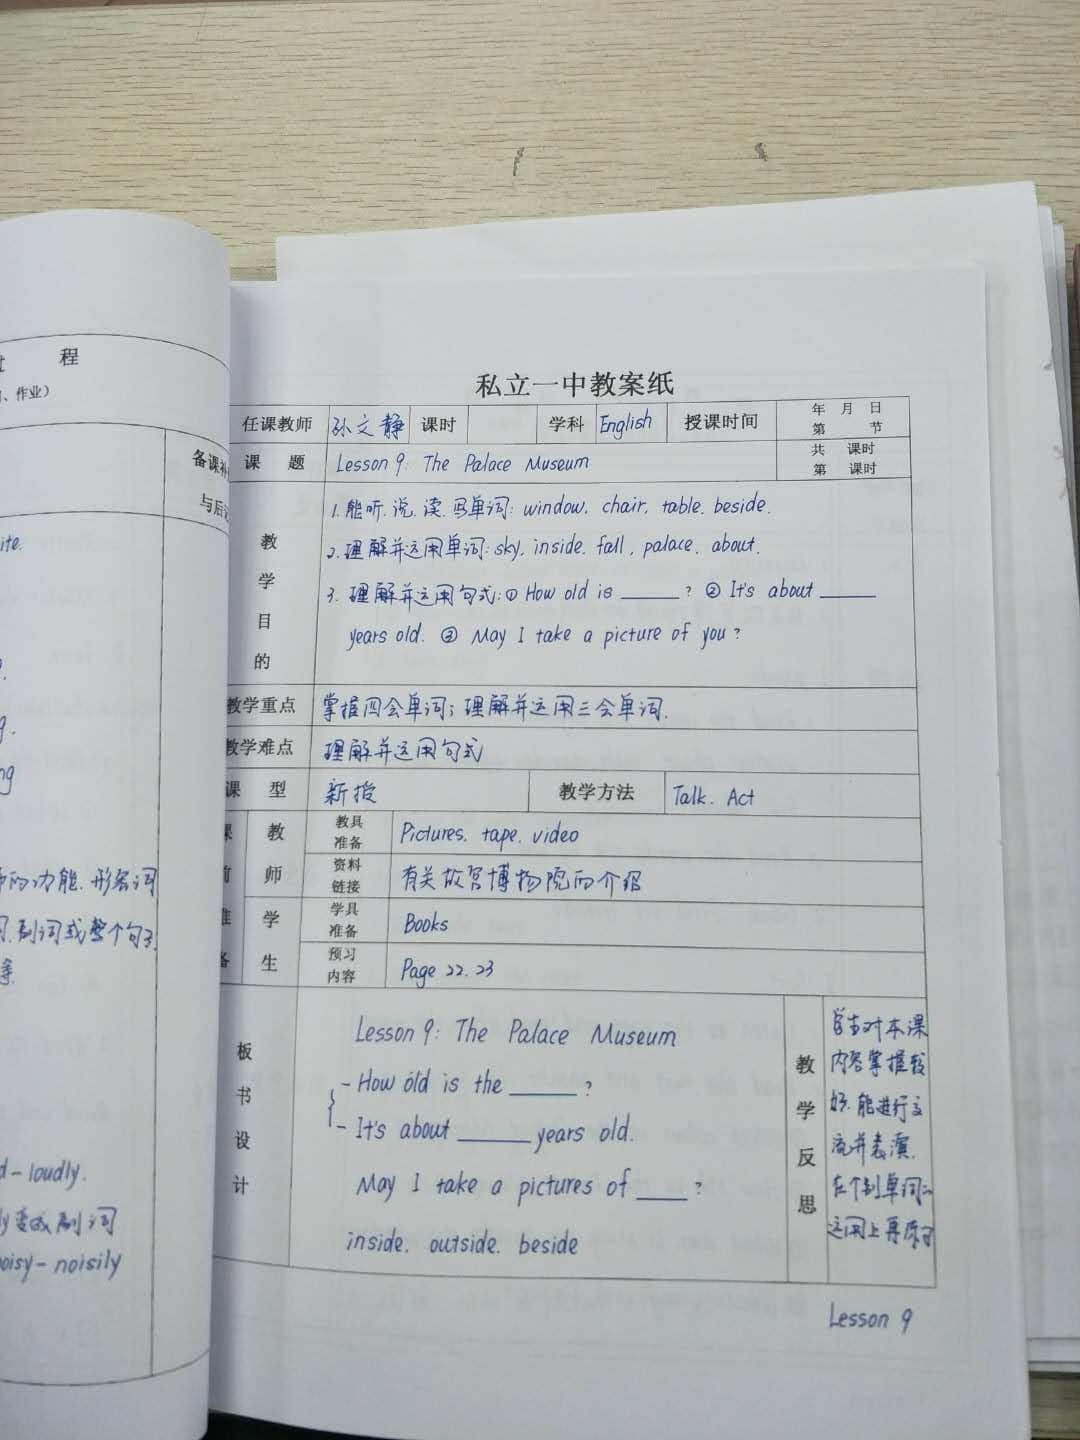 程
、作业）
备课补
与后记
ite.
ng
的功能.形容词
副词或整个句子
等.
d-loudly.
y变成副词
noisy-noisily
私立一中教案纸
任课教师 孙文静 课时 学科 English 授课时间 年 月 日
第 节
课 题 Lesson 9: The Palace Museum 共 课时
第 课时
教学目的
1. 能听.说.读.写单词: window. chair. table. beside.
2. 理解并运用单词: sky. inside. fall. palace. about.
3. 理解并运用句式: ① How old is ______ ? ② It's about ______
years old. ③ May I take a picture of you?
教学重点 掌握四会单词; 理解并运用三会单词.
教学难点 理解并运用句式
课 型 新授 教学方法 Talk. Act
课前准备
教师
教具准备 Pictures. tape. video
资料链接 有关故宫博物院的介绍
学生
学具准备 Books
预习内容 Page 22.23
板书设计
Lesson 9: The Palace Museum
- How old is the ______ ?
- It's about ______ years old.
May I take a pictures of ____ ?
inside. outside. beside
教学反思
对本课
内容掌握较
好. 能进行交
流并表演.
在个别单词
运用上再
Lesson 9